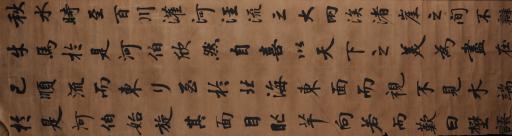 秋水時至百川灌河涇流之大兩涘渚崖之間不辯
牛馬於是河伯欣然自喜以天下之美為盡在
己順流而東行至於北海東面而視不見水端
於是河伯始旋其面目盳羊向若而歎曰